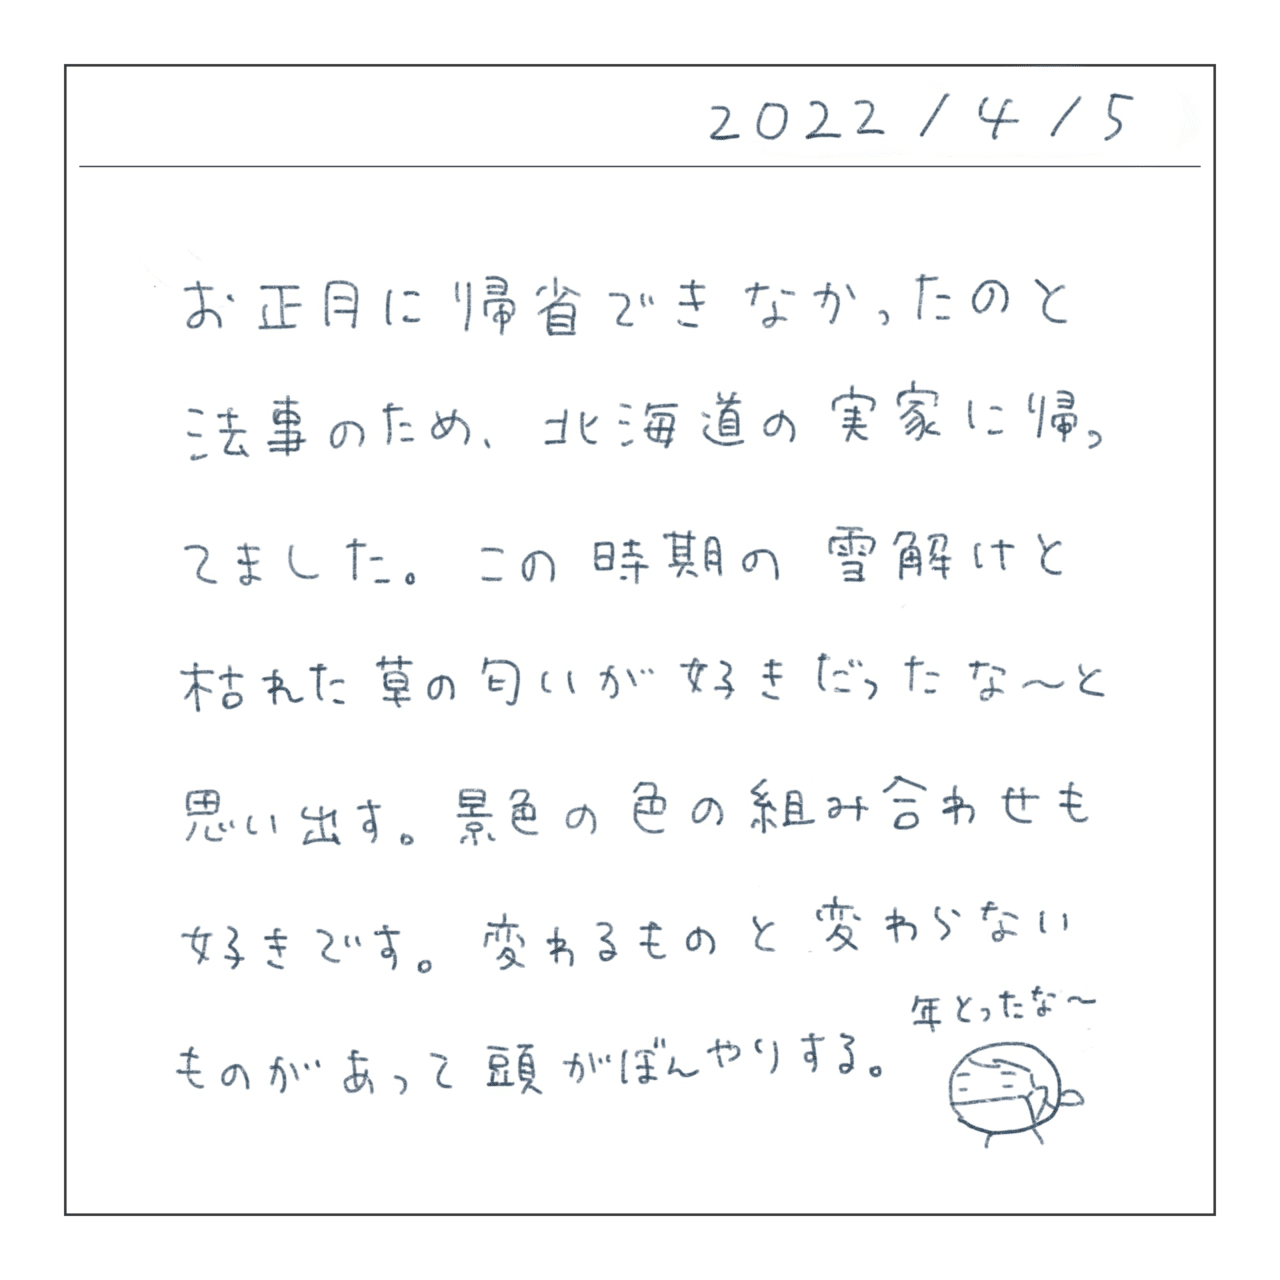 2022/4/5
お正月に帰省できなかったのと
法事のため、北海道の実家に帰っ
てました。この時期の雪解けと
枯れた草の匂いが好きだったな〜と
思い出す。景色の色の組み合わせも
好きです。変わるものと変わらない
ものがあって頭がぼんやりする。
年とったな〜